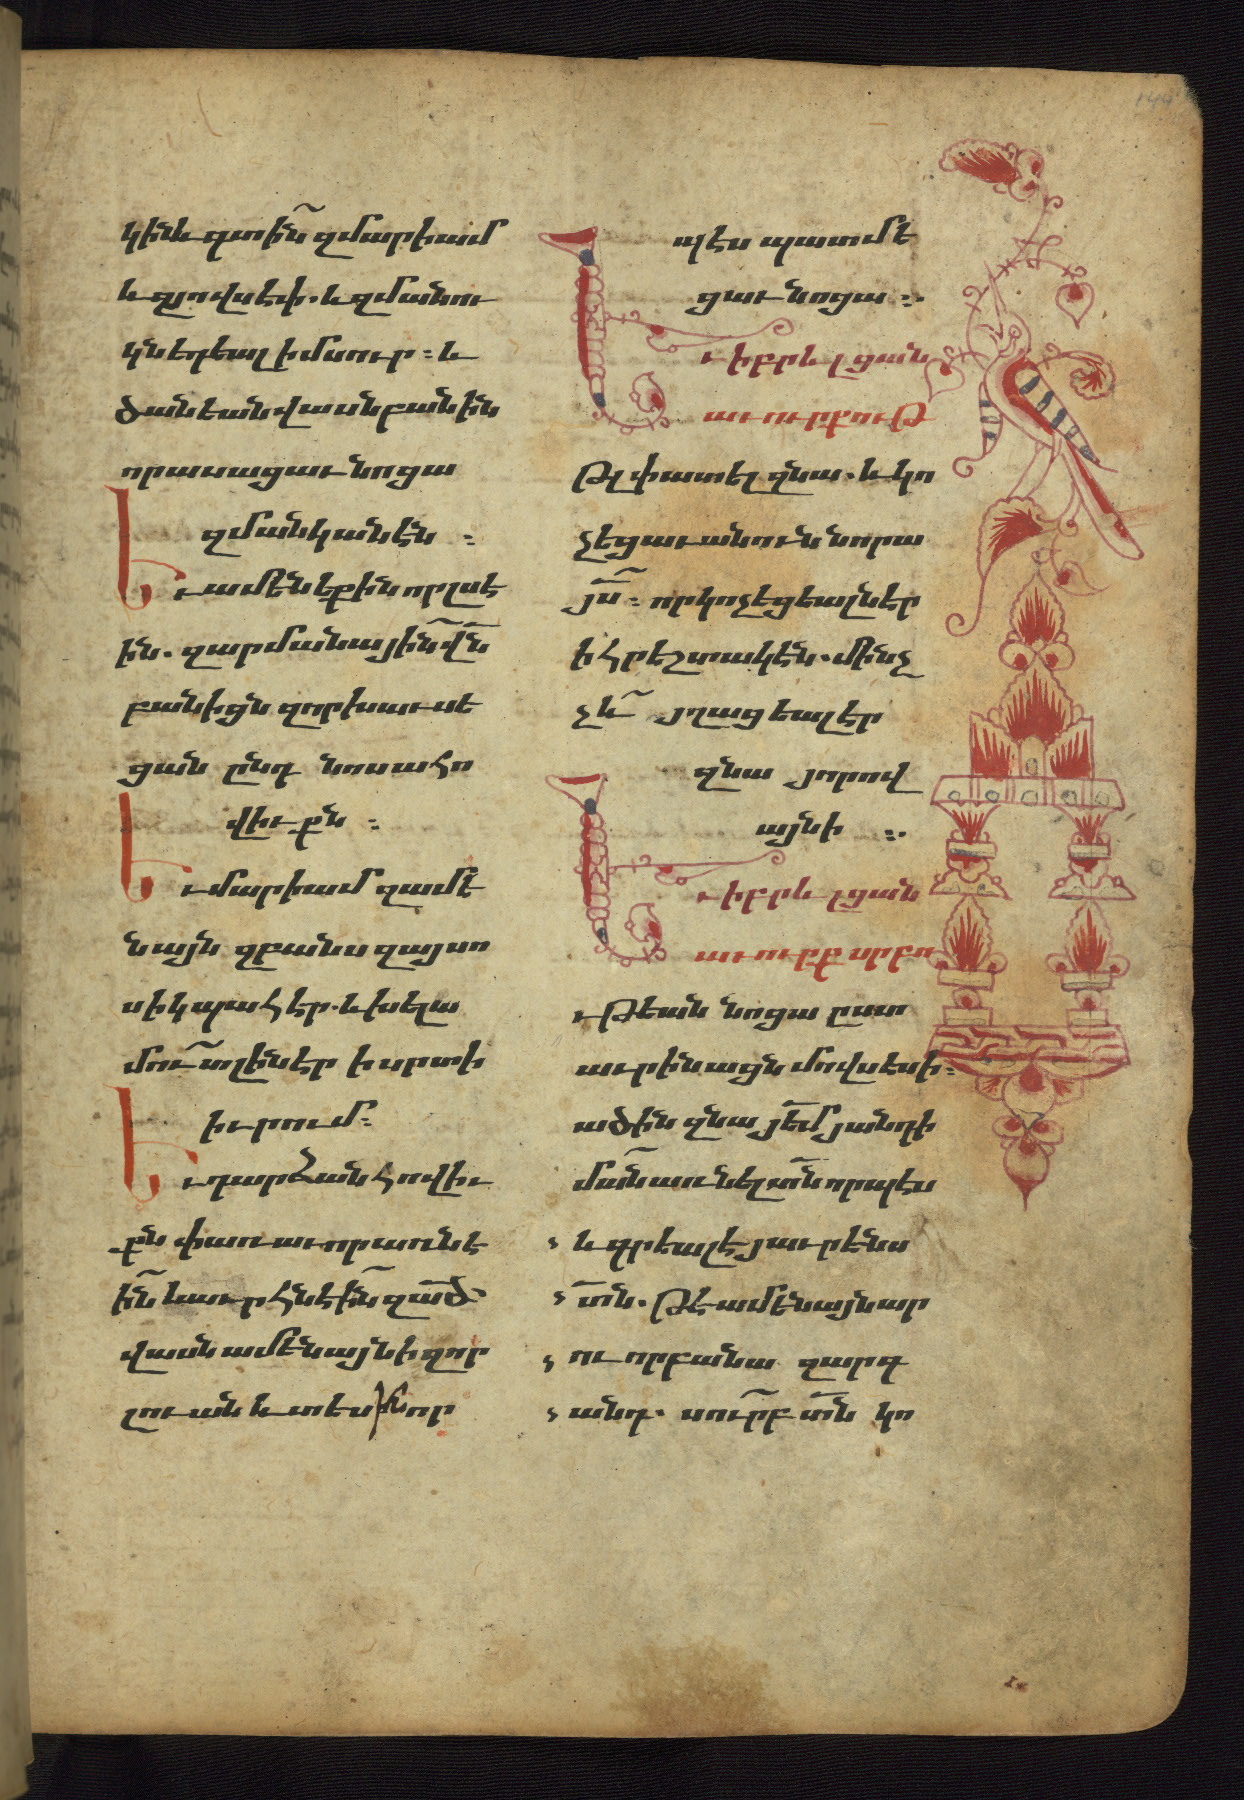 կին և գտին՟ զմարիամ
և զյովսէփ. և զմանու
կն եդեալ ի մսուր ։ և
ծանեան վասն բանին
որ ասացաւ նոցա
զմանկանէն ։
Եւ ամենեքին որ լսէ
ին. զարմանային վ՟ն
բանիցն զոր խաւսե
ցան ընդ նոսա հո
վիւքն ։
Եւ մարիամ զամե
նայն զբանս զայսո
սիկ պահէր. և խելա
մուտ՟ լինէր ի սրտի
իւրում ։
Եւ դարձան հովիւ
քն փառաւոր առնե
ին՟ և աւրհնէին՟ զա՟ծ
վասն ամենայնի զոր
լուան և տեսին որ
պէս պատմե
ցաւ նոցա ։.
Եւ իբրև լցան
աւուրք ութ
թլփատել զնա. և կո
չեցաւ անուն նորա
յ՟ս ։ որ կոչեցեալ էր
ի հրեշտակէն. մինչ
չև՟ յղացեալ էր
զնա յորով
այնի ։.
Եւ իբրև լցան
աւուրք սրբո
ւթեան նոցա ըստ
աւրինացն մովսեսի ։
ածին զնա յե՟մ յանդի
ման՟ առնել տ՟ն որպէս
և գրեալ է յաւրէնս
տ՟ն. թէ ամենայն ար
ու որ բանա զարգ
անդ. սուրբ՟ տ՟ն կո
144